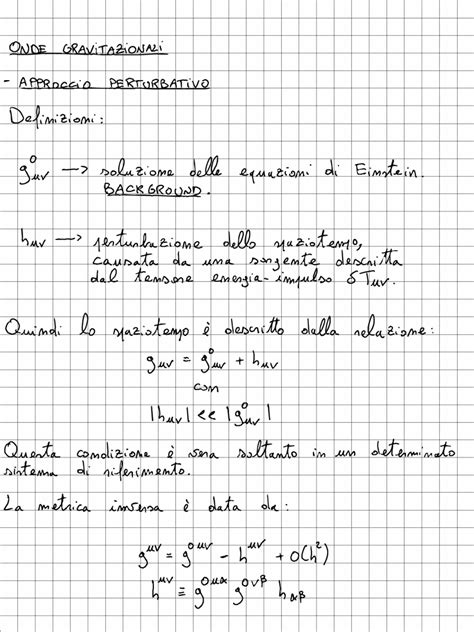 ONDE GRAVITAZIONALI
- APPROCCIO PERTURBATIVO
Definizioni:
g⁰μν —> soluzione delle equazioni di Einstein.
BACKGROUND.
hμν —> perturbazione dello spaziotempo,
causata da una sorgente descritta
dal tensore energia-impulso δTμν.
Quindi lo spaziotempo è descritto dalla relazione:
gμν = g⁰μν + hμν
con
|hμν| << |g⁰μν|
Questa condizione è vera soltanto in un determinato
sistema di riferimento.
La metrica inversa è data da:
g^μν = g^0μν - h^μν + O(h²)
h^μν ≡ g^0μα g^0νβ hαβ